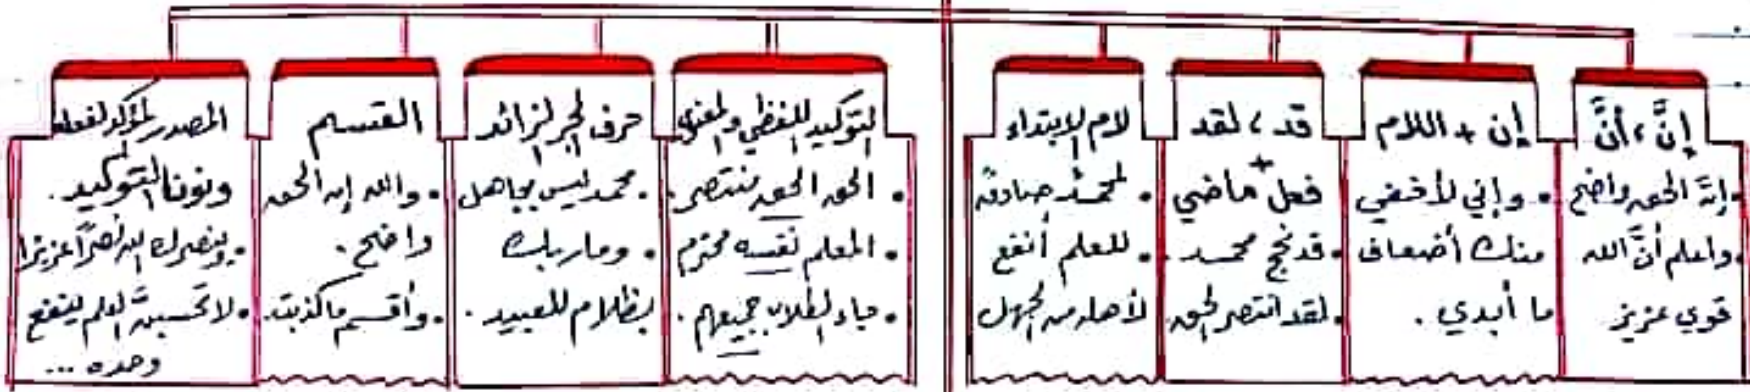 إنَّ، أنَّ
. إنَّ الحق واضح
. واعلم أنَّ الله
قوي عزيز
إن + اللام
. وإني لأخفي
منك أضعاف
ما أبدي.
قد، لقد
+
فعل ماضي
. قد نجح محمد.
. لقد انتصر الحق
لام الابتداء
. لمحمدٌ صادقٌ
. للعلم أنفع
لأهله من الجهل
التوكيد اللفظي والمعنوي
. الحق الحق منتصر.
. المعلم نفسه محترم
. جاء الطلاب جميعهم.
حرف الجر الزائد
. محمد ليس بجاهل
. وما ربك
بظلام للعبيد.
القسم
. والله إن الحق
واضح.
. وأقسم ما كذبت.
المصدر المؤكد لفعله
ونونا التوكيد.
. وينصرك الله نصرًا عزيزا
. لا تحسبنَّ العلم ينفع
وحده ...